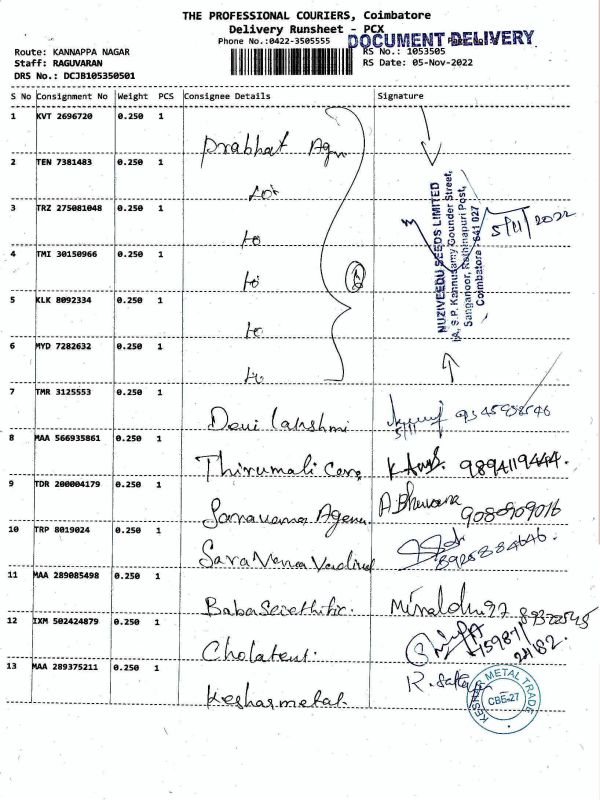 THE PROFESSIONAL COURIERS, Coimbatore
Delivery Runsheet - PCX
Phone No.:0422-3505555
DOCUMENT DELIVERY
Route: KANNAPPA NAGAR
RS No.: 1053505
Staff: RAGUVARAN
RS Date: 05-Nov-2022
DRS No.: DCJB105350501
S No Consignment No Weight PCS Consignee Details Signature
1 KVT 2696720 0.250 1
Prabhat Agn
2 TEN 7381483 0.250 1
3 TRZ 275081048 0.250 1
to
4 TMI 30150966 0.250 1
to
5 KLK 8092334 0.250 1
to
6 MYD 7282632 0.250 1
to
NUZIVEEDU SEEDS LIMITED
S.P. Kannusamy Gounder Street,
Sanganoor, Rathinapuri Post,
Coimbatore - 641 027
5/11/2022
7 TMR 3125553 0.250 1
Devi Lakshmi
5/11
8 MAA 566935861 0.250 1
Thirumali Care 9894119444.
9 TDR 200004179 0.250 1
Saravana Agenc A.Bhuvana 9080909016
10 TRP 8019024 0.250 1
Saravana
11 MAA 289085498 0.250 1
Baba Scientific.
12 IXM 502424879 0.250 1
Cholateut.
13 MAA 289375211 0.250 1
Keshar metal. R.
KESHAR METAL TRADE
CBE-27